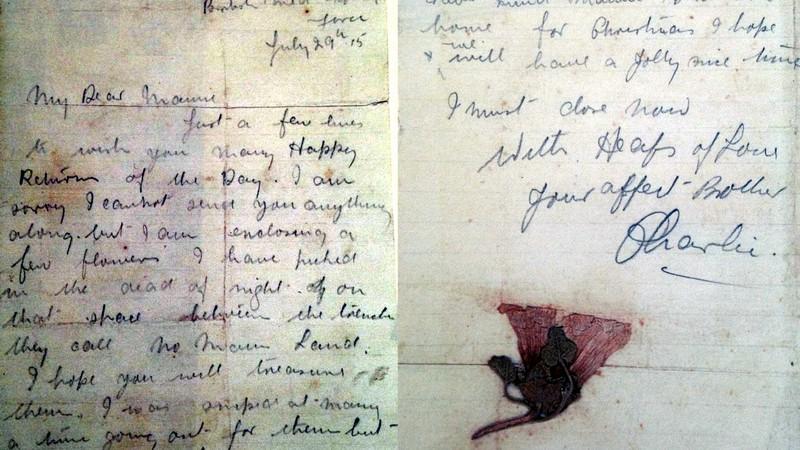 British
Force
July 29th 15
My Dear Mamie
Just a few lines
to wish you many Happy
Returns of the Day. I am
sorry I cannot send you anything
along. but I am enclosing a
few flowers I have picked
in the dead of night. of on
that space between the trench
they call No Mans Land.
I hope you will treasure
them. I was sniped at many
a time going out for them but
home for Christmas I hope
& we will have a jolly nice time
I must close now
With Heaps of Love
Your affect Brother
Charlie.